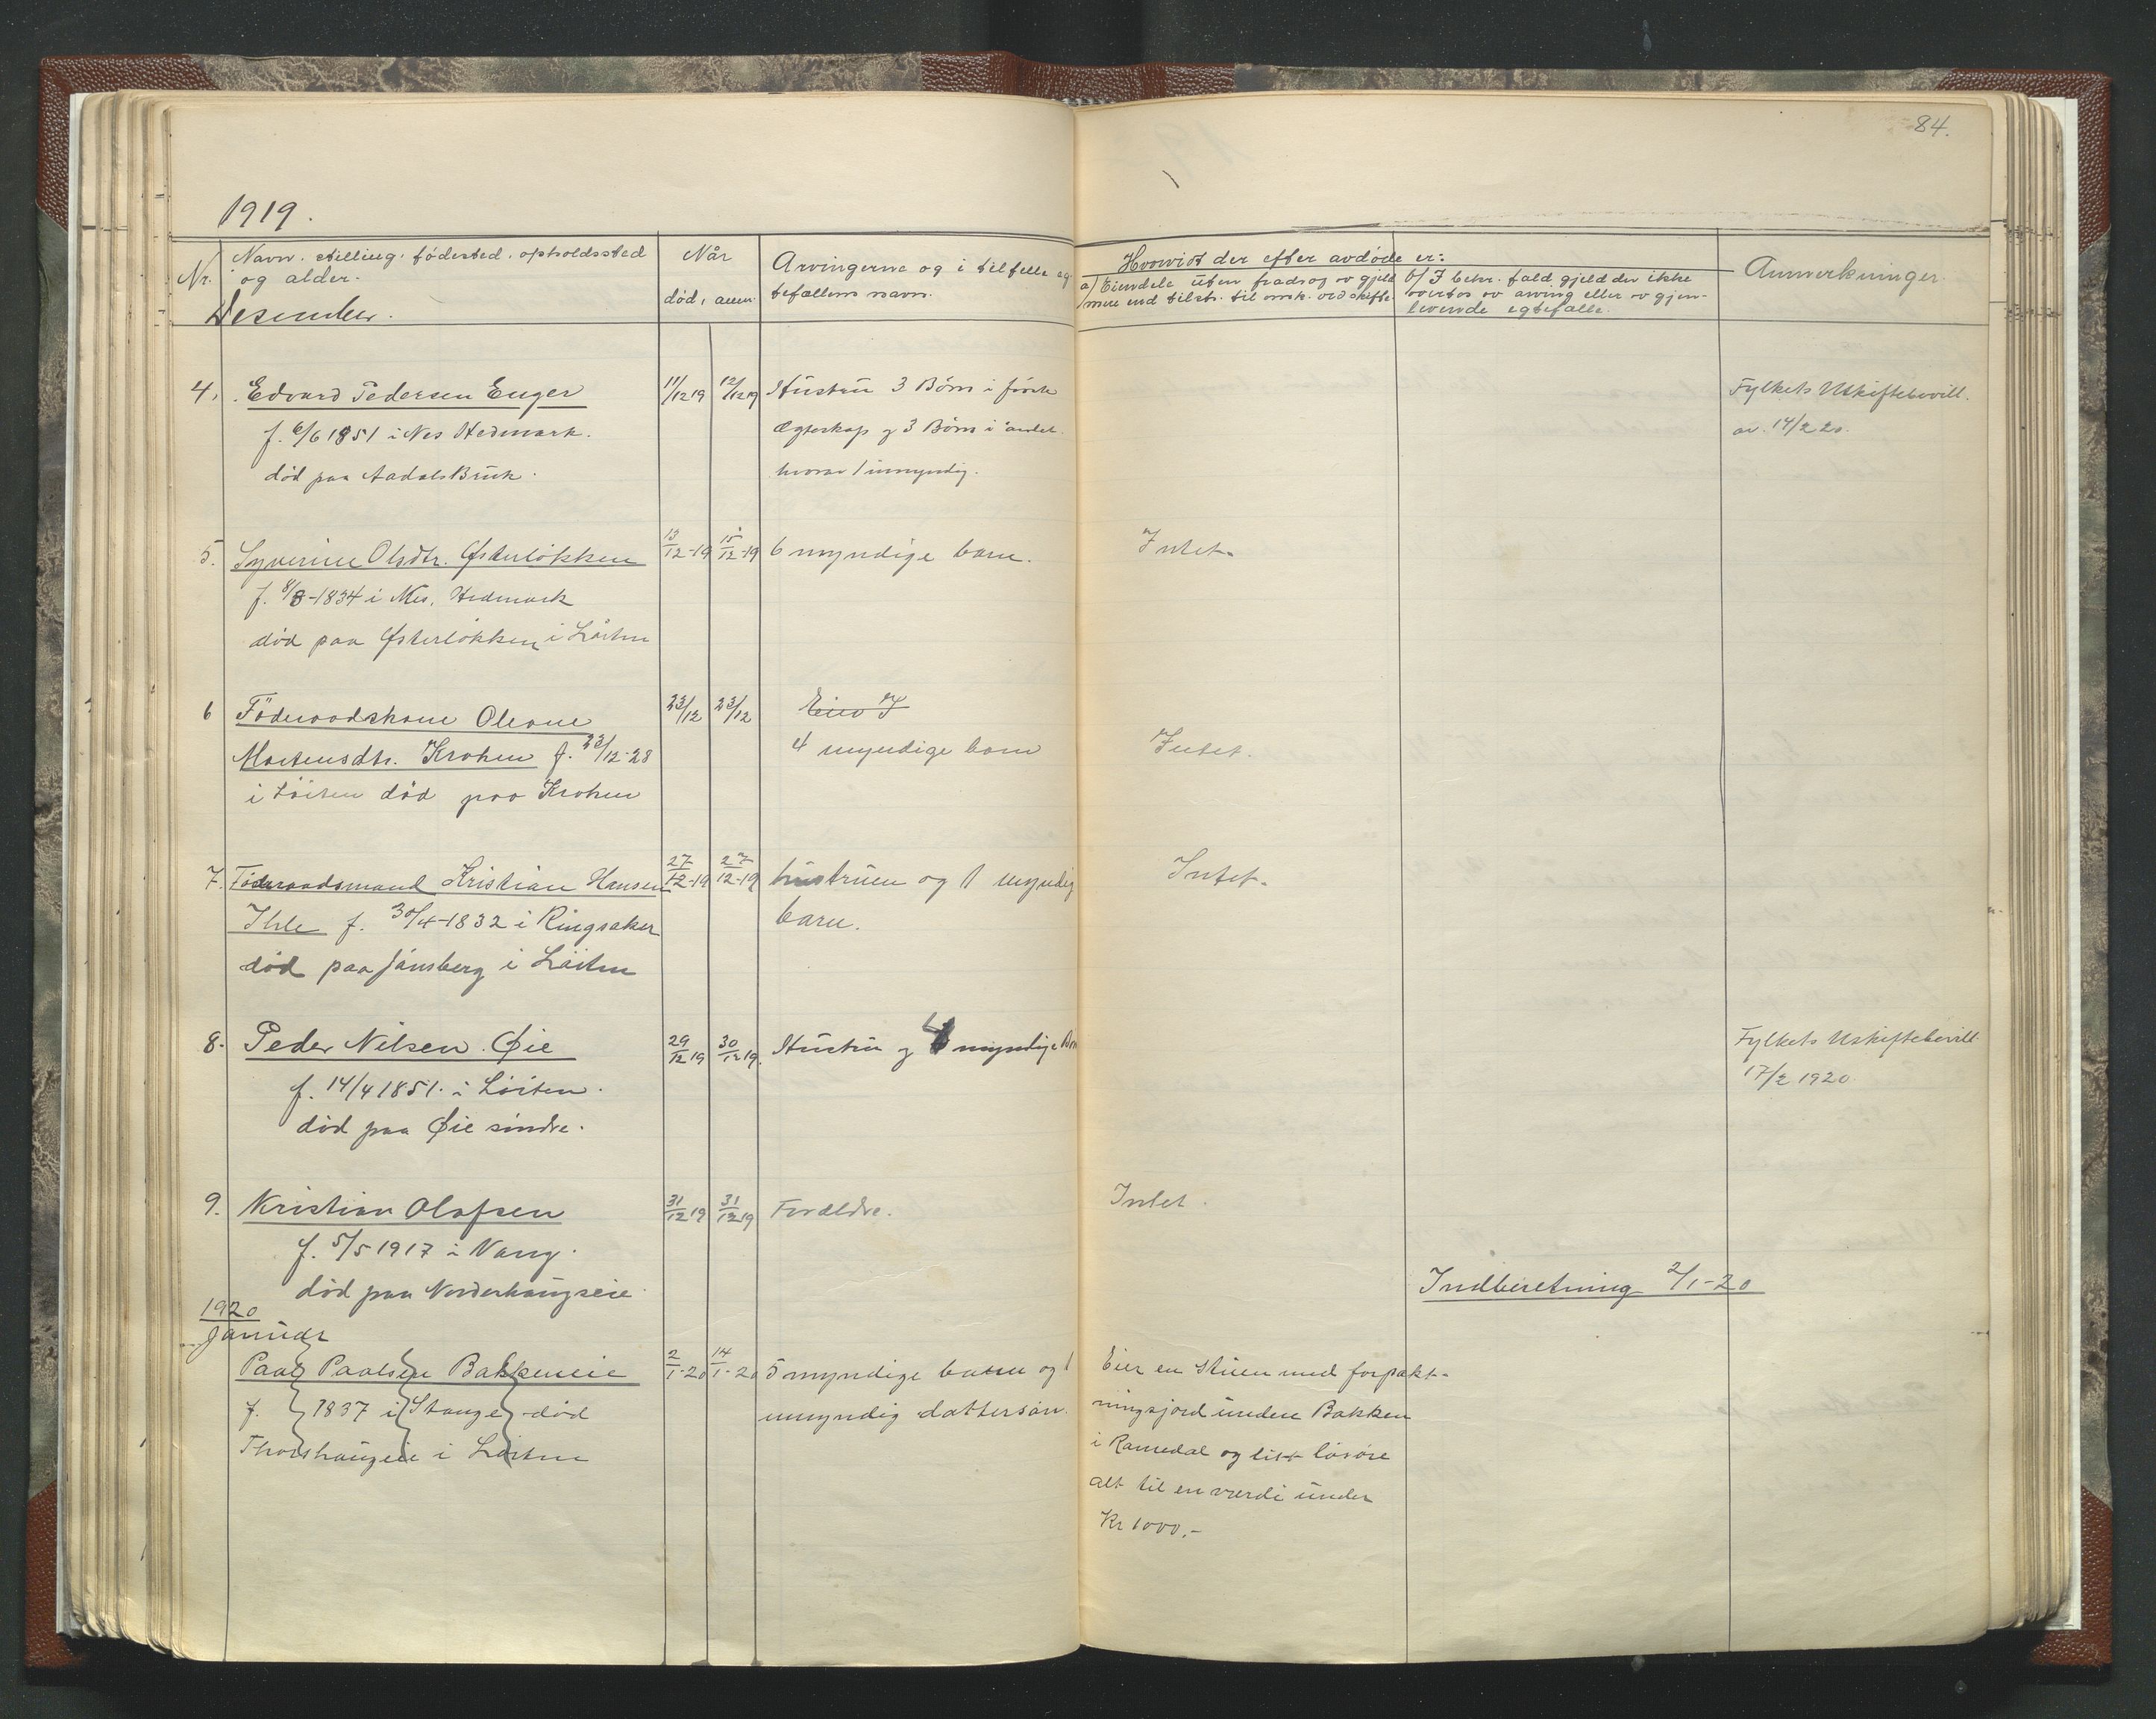 84.
1919.
Nr. Navn. stilling. fødested. opholdssted
og alder.
Når
død, anm.
Arvingerne og i tilfelle eg-
tefællens navn.
Hvorvidt der efter avdøde er:
a/ Eiendele uten fradrag av gjeld
mere end tilstr. til omk. ved skifte
b/ I betr. fald gjeld der ikke
overtas av arving eller av gjen-
levende egtefælle.
Anmerkninger.
Desember.
4. Edvard Pedersen Enger 11/12 19 12/12 19 Hustru 3 Børn i første Fylkets Uskiftebevill.
f. 6/6 1851 i Nes Hedmark. Ægteskap og 3 Børn i andet av 14/2 20.
død paa Aadals Bruk. hvorav 1 umyndig.
5. Syverine Olsdtr. Østerløkken 13/12-19 15/12-19 6 myndige barn. Intet.
f. 8/8-1834 i Nes, Hedmark
død paa Østerløkken i Løiten
6 Føderaadskone Oleane 23/12 23/12 Eier I
Mortensdtr. Krohen f. 23/12-28 4 myndige barn Intet.
i Løiten død paa Krohen
7. Føderaadsmand Kristian Hansen 27/12-19 27/12-19 hustruen og 1 myndig Intet.
Ihle f. 30/4-1832 i Ringsaker barn.
død paa Jønsberg i Løiten
8. Peder Nilsen Øie 29/12 19 30/12 19. Hustru og 4 myndige Børn Fylkets Uskiftebevill.
f. 14/4 1851. i Løiten. 17/2 1920.
død paa Øie søndre.
9. Kristian Olafsen 31/12 19 31/12 19 Forældre. Intet.
f. 5/5 1917 i Vang.
død paa Norderhaugseie.
Indberetning 2/1-20
1920
Januar
Paal Paalsen Bakkeneie 2/1-20 14/1-20 5 myndige barn og 1 Eier en Stuen med forpakt-
f. 1837 i Stange død umyndig dattersøn. ningsjord under Bakken
Thorshaugeie i Løiten i Romedal og litt løsøre
alt til en værdi under
Kr 1000.-